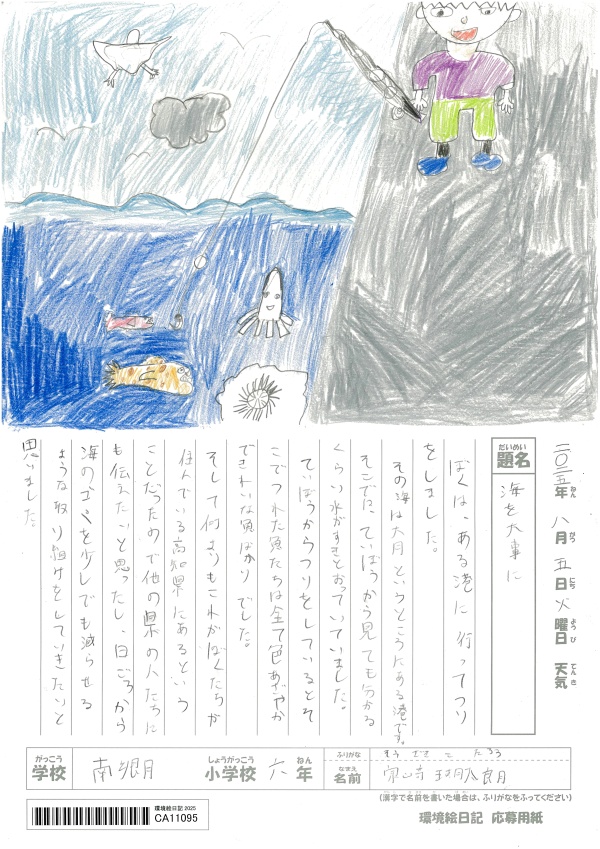 二〇二五年 八月 五日 火曜日 天気
ねん がつ にち ようび てんき
だいめい
題名
海を大事に
ぼくは、ある港に行ってつり
をしました。
その海は大月というところにある港です。
そこでは、ていぼうから見ても分かる
くらい水がすきとおっていていました。
ていぼうからつりをしているとそ
こでつれた魚たちは全て色あざやか
できれいな魚ばかりでした。
そして何よりもこれがぼくたちが
住んでいる高知県にあるという
ことだったので他の県の人たちに
も伝えたいと思ったし、日ごろから
海のゴミを少しでも減らせる
ような取り組みをしていきたいと
思いました。
がっこう しょうがっこう ねん ふりがな
学校 小学校 六年 なまえ 名前
(漢字で名前を書いた場合は、ふりがなをふってください)
環境絵日記 2025
CA11095
環境絵日記 応募用紙